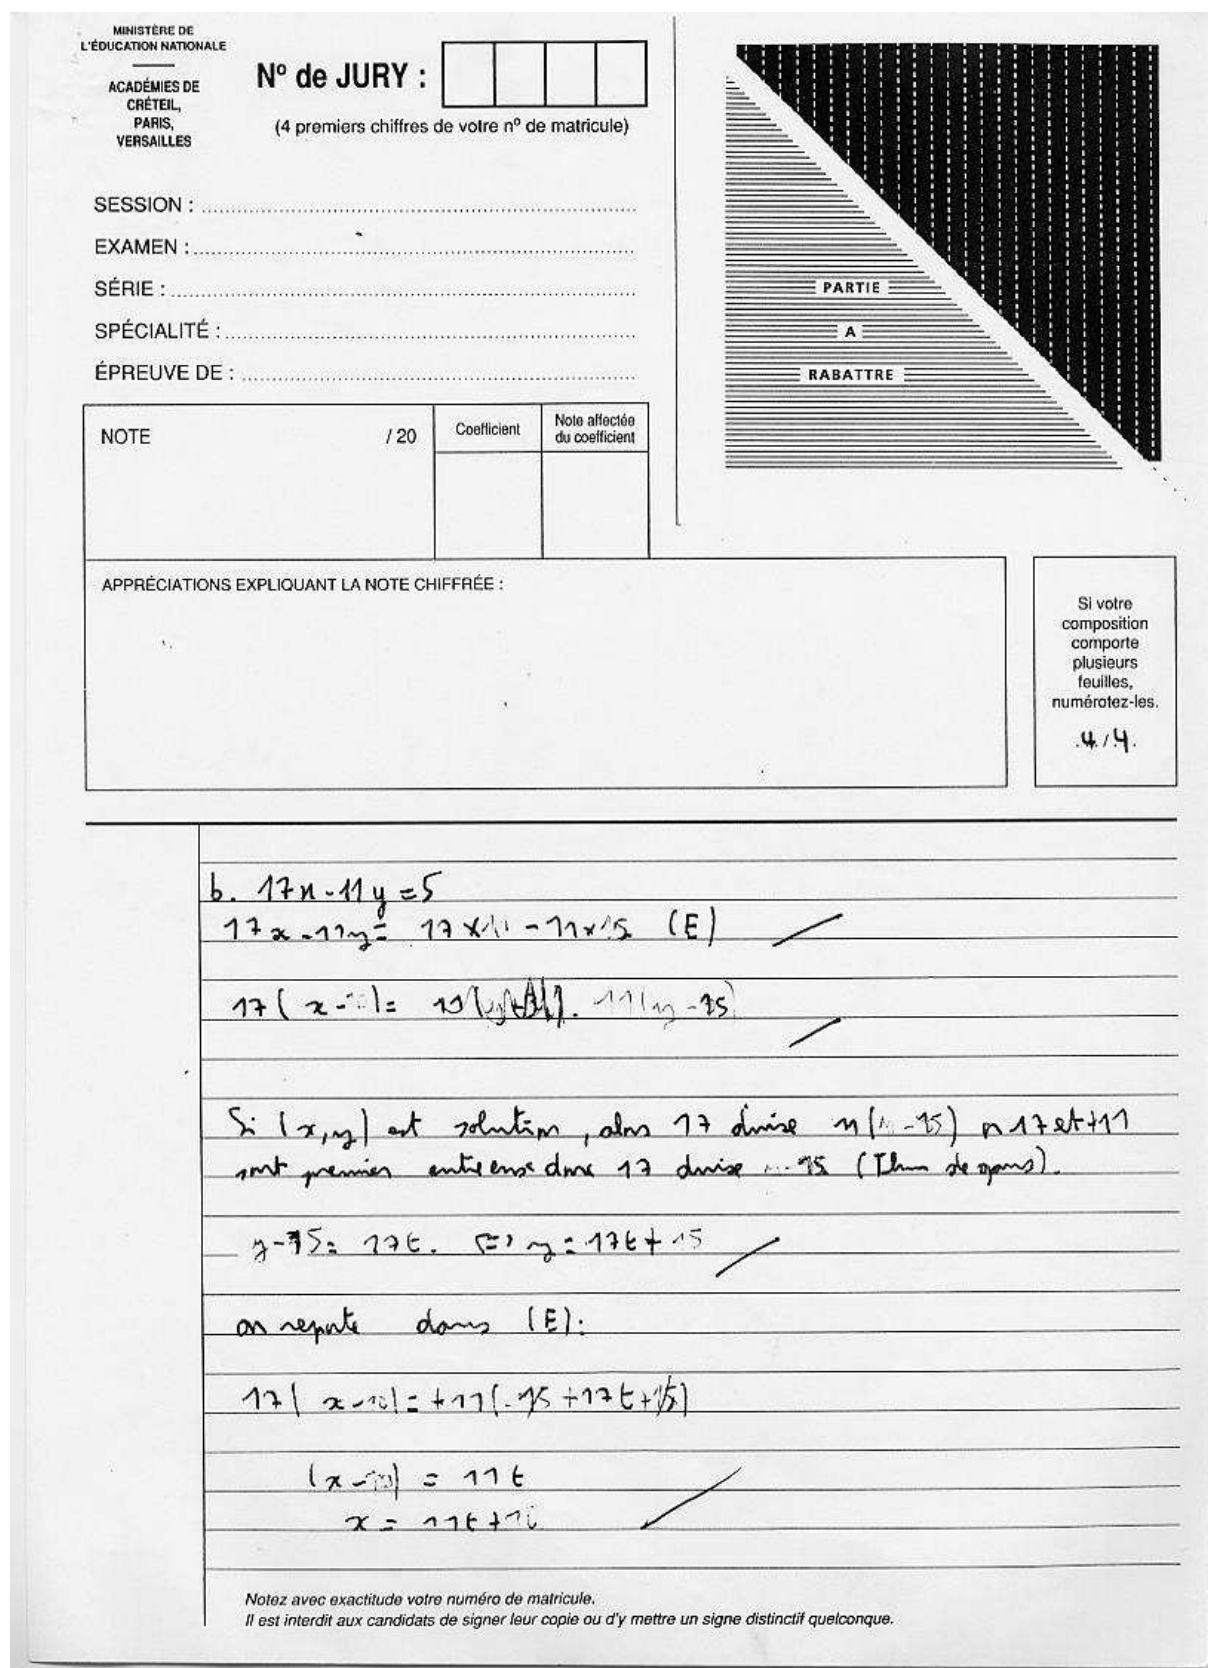 MINISTÈRE DE
L'ÉDUCATION NATIONALE
ACADÉMIES DE
CRÉTEIL,
PARIS,
VERSAILLES
Nº de JURY :
(4 premiers chiffres de votre nº de matricule)
SESSION :
EXAMEN :
SÉRIE :
SPÉCIALITÉ :
ÉPREUVE DE :
PARTIE
A
RABATTRE
NOTE / 20
Coefficient
Note affectée
du coefficient
APPRÉCIATIONS EXPLIQUANT LA NOTE CHIFFRÉE :
Si votre
composition
comporte
plusieurs
feuilles,
numérotez-les.
4/4.
b. 17x-11y=5
17x-11y= 17×10 - 11×15 (E)
17(x-10)= 11(y-15)
Si (x,y) est solution, alors 17 divise 11(y-15) or 17 et 11
sont premier entre eux donc 17 divise y-15 (Thm de gauss).
y-15= 17t. <=> y= 17t+15
on reporte dans (E):
17(x-10)= +11(-15+17t+15)
(x-10) = 11t
x = 11t+10
Notez avec exactitude votre numéro de matricule.
Il est interdit aux candidats de signer leur copie ou d'y mettre un signe distinctif quelconque.